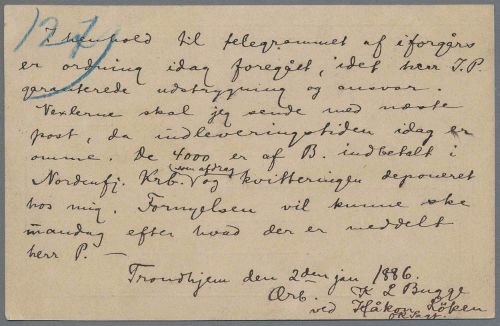 127
I henhold til telegrammet af iforgårs
er ordning idag foregået, idet herr I.P.
garanterede udstrygning og ansvar.
Vexlerne skal jeg sende med næste
post, da indleveringstiden idag er
omme. De 4000 er af B. indbetalt i
som afdrag
Nordenfj. Krb. og kvitteringen deponeret
hos mig. Fornyelsen vil kunne ske
mandag efter hvad der er meddelt
herr P. —
Trondhjem den 2den jan 1886.
Ærb. K L Bugge
ved Håkon Löken